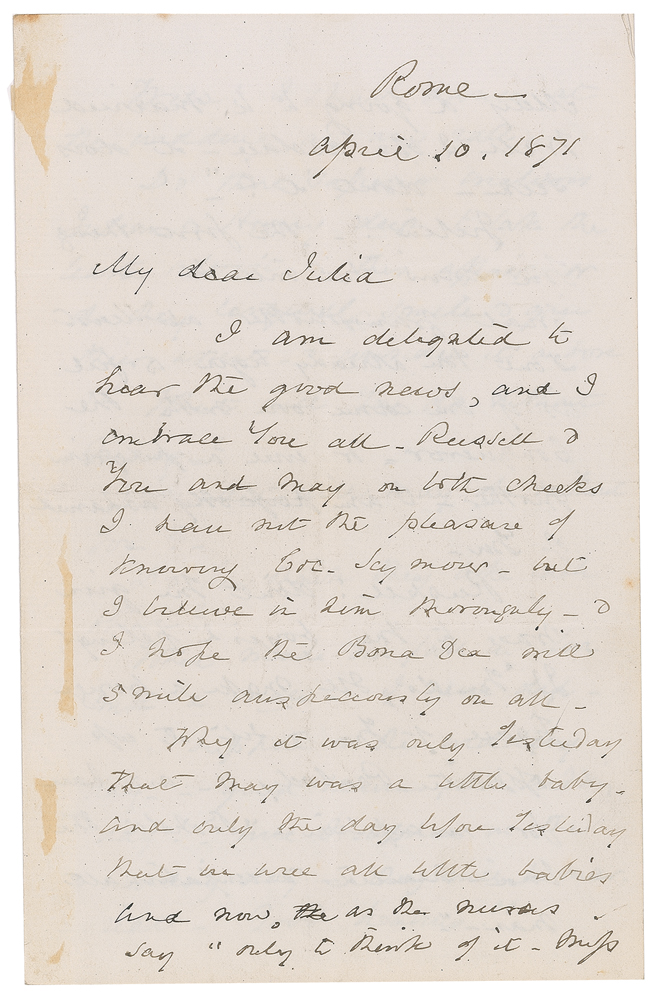 Rome -
April 10. 1871
My dear Julia
I am delighted to
hear the good news, and I
embrace you all - Russell &
You and May on both cheeks
I have not the pleasure of
knowing Col. Seymour - but
I believe in him thoroughly - &
I hope the Bona Dea will
smile auspiciously on all -
Why it was only Yesterday
that May was a little baby -
and only the day before Yesterday
that we were all little babies
and now, the as the nurses
say "only to think of it - Miss